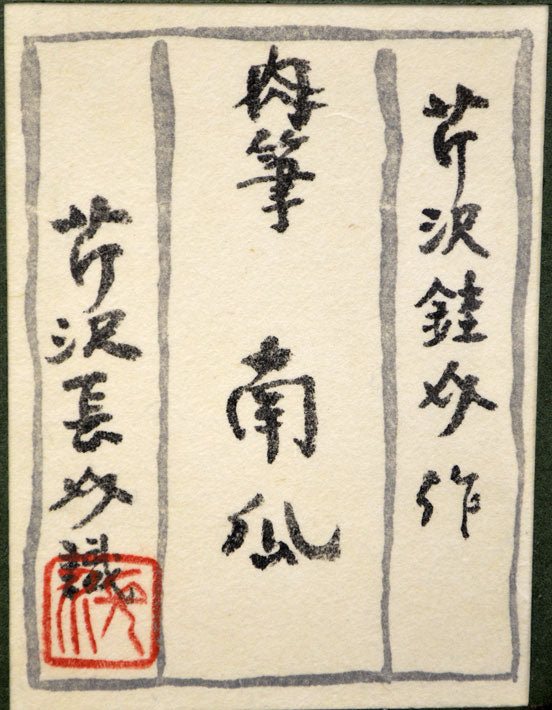 芹沢銈介作
肉筆　南瓜
芹沢長介識